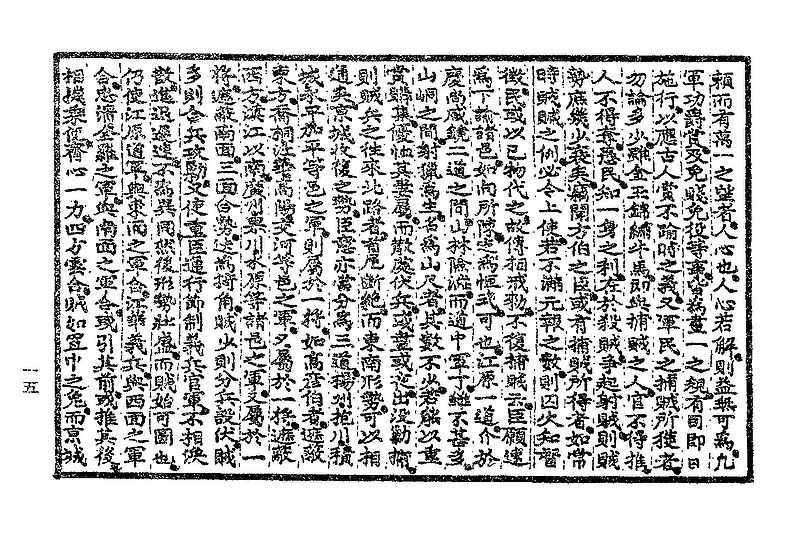 賴而有萬一之望者人心也人心若解則益無可爲凡
軍功爵賞及免賤免役等事皆爲畫一之規有同卽日
施行以應古人賞不踰時之義又軍民之捕賊所獲者
勿論多少雖金玉錦繡牛馬卽與捕賊之人官不得推
人不得奪愚民知一身之利在於殺賊爭起射賊則賊
勢庶幾少衰矣竊聞方伯之臣或有捕賊所得者如常
時賊贓之例必令上使若不滿元報之數則囚火知督
徵民或以已物代之故傳相戒勑不復捕賊云臣願速
爲下諭諸邑如向所陳定爲恒式可也江原一道介於
慶尙咸鏡二道之間山林險阻而道中軍丁雖不甚多
山峒之間射獵爲生名爲山尺者其數不少若能以重
賞購集優恤其妻屬而散處伏兵或晝或夜出沒勦捕
則賊兵之往來北路者首尾斷絶而東南形勢可以相
通矣京城收復之勢臣意亦當分爲三道楊州抱川積
城永平加平等邑之軍則屬於一將如高彦伯者遮敵
東方喬桐江華高陽交河等邑之軍又屬於一將遮敵
西方漢江以南廣州果川水原等諸邑之軍又屬於一
將遮敵南面三面合勢迭爲掎角賊少則分兵設伏賊
多則合兵攻勦又使重臣通行節制義兵官軍不相渙
散進退遲速不爲異同然後形勢壯盛而賊始可圖也
仍使江原道軍與東面之軍合江華義兵與西面之軍
合忠淸全羅之軍與南面之軍合或引其前或推其後
相機乘便齊心一力四方雲合賊如罝中之兔而京城
一五